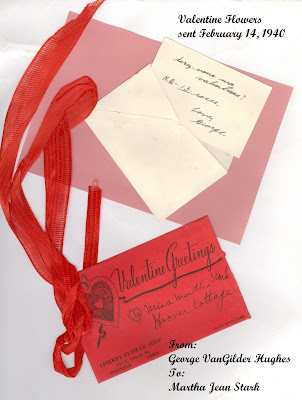 Valentine Flowers
sent February 14, 1940
valentines?
Love,
George.
Valentine Greetings
Miss Martha Stark
Hoover Cottage
LIBERTY FLOWER SHOP
From:
George VanGilder Hughes
To:
Martha Jean Stark